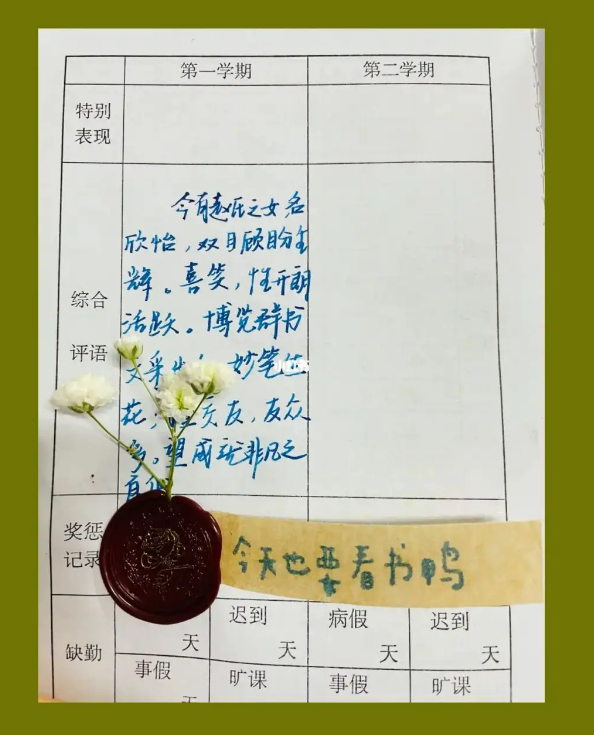 第一学期 第二学期
特别
表现
综合
评语
今有赵氏之女名
欣怡，双目顾盼生
辉。喜笑，性开朗
活跃。博览群书
文采 妙笔生
花； 交友，友众
多。望成就非凡之
奖惩
记录
今天也要看书鸭
缺勤
天 迟到 天 病假 天 迟到 天
事假 天 旷课 事假 旷课